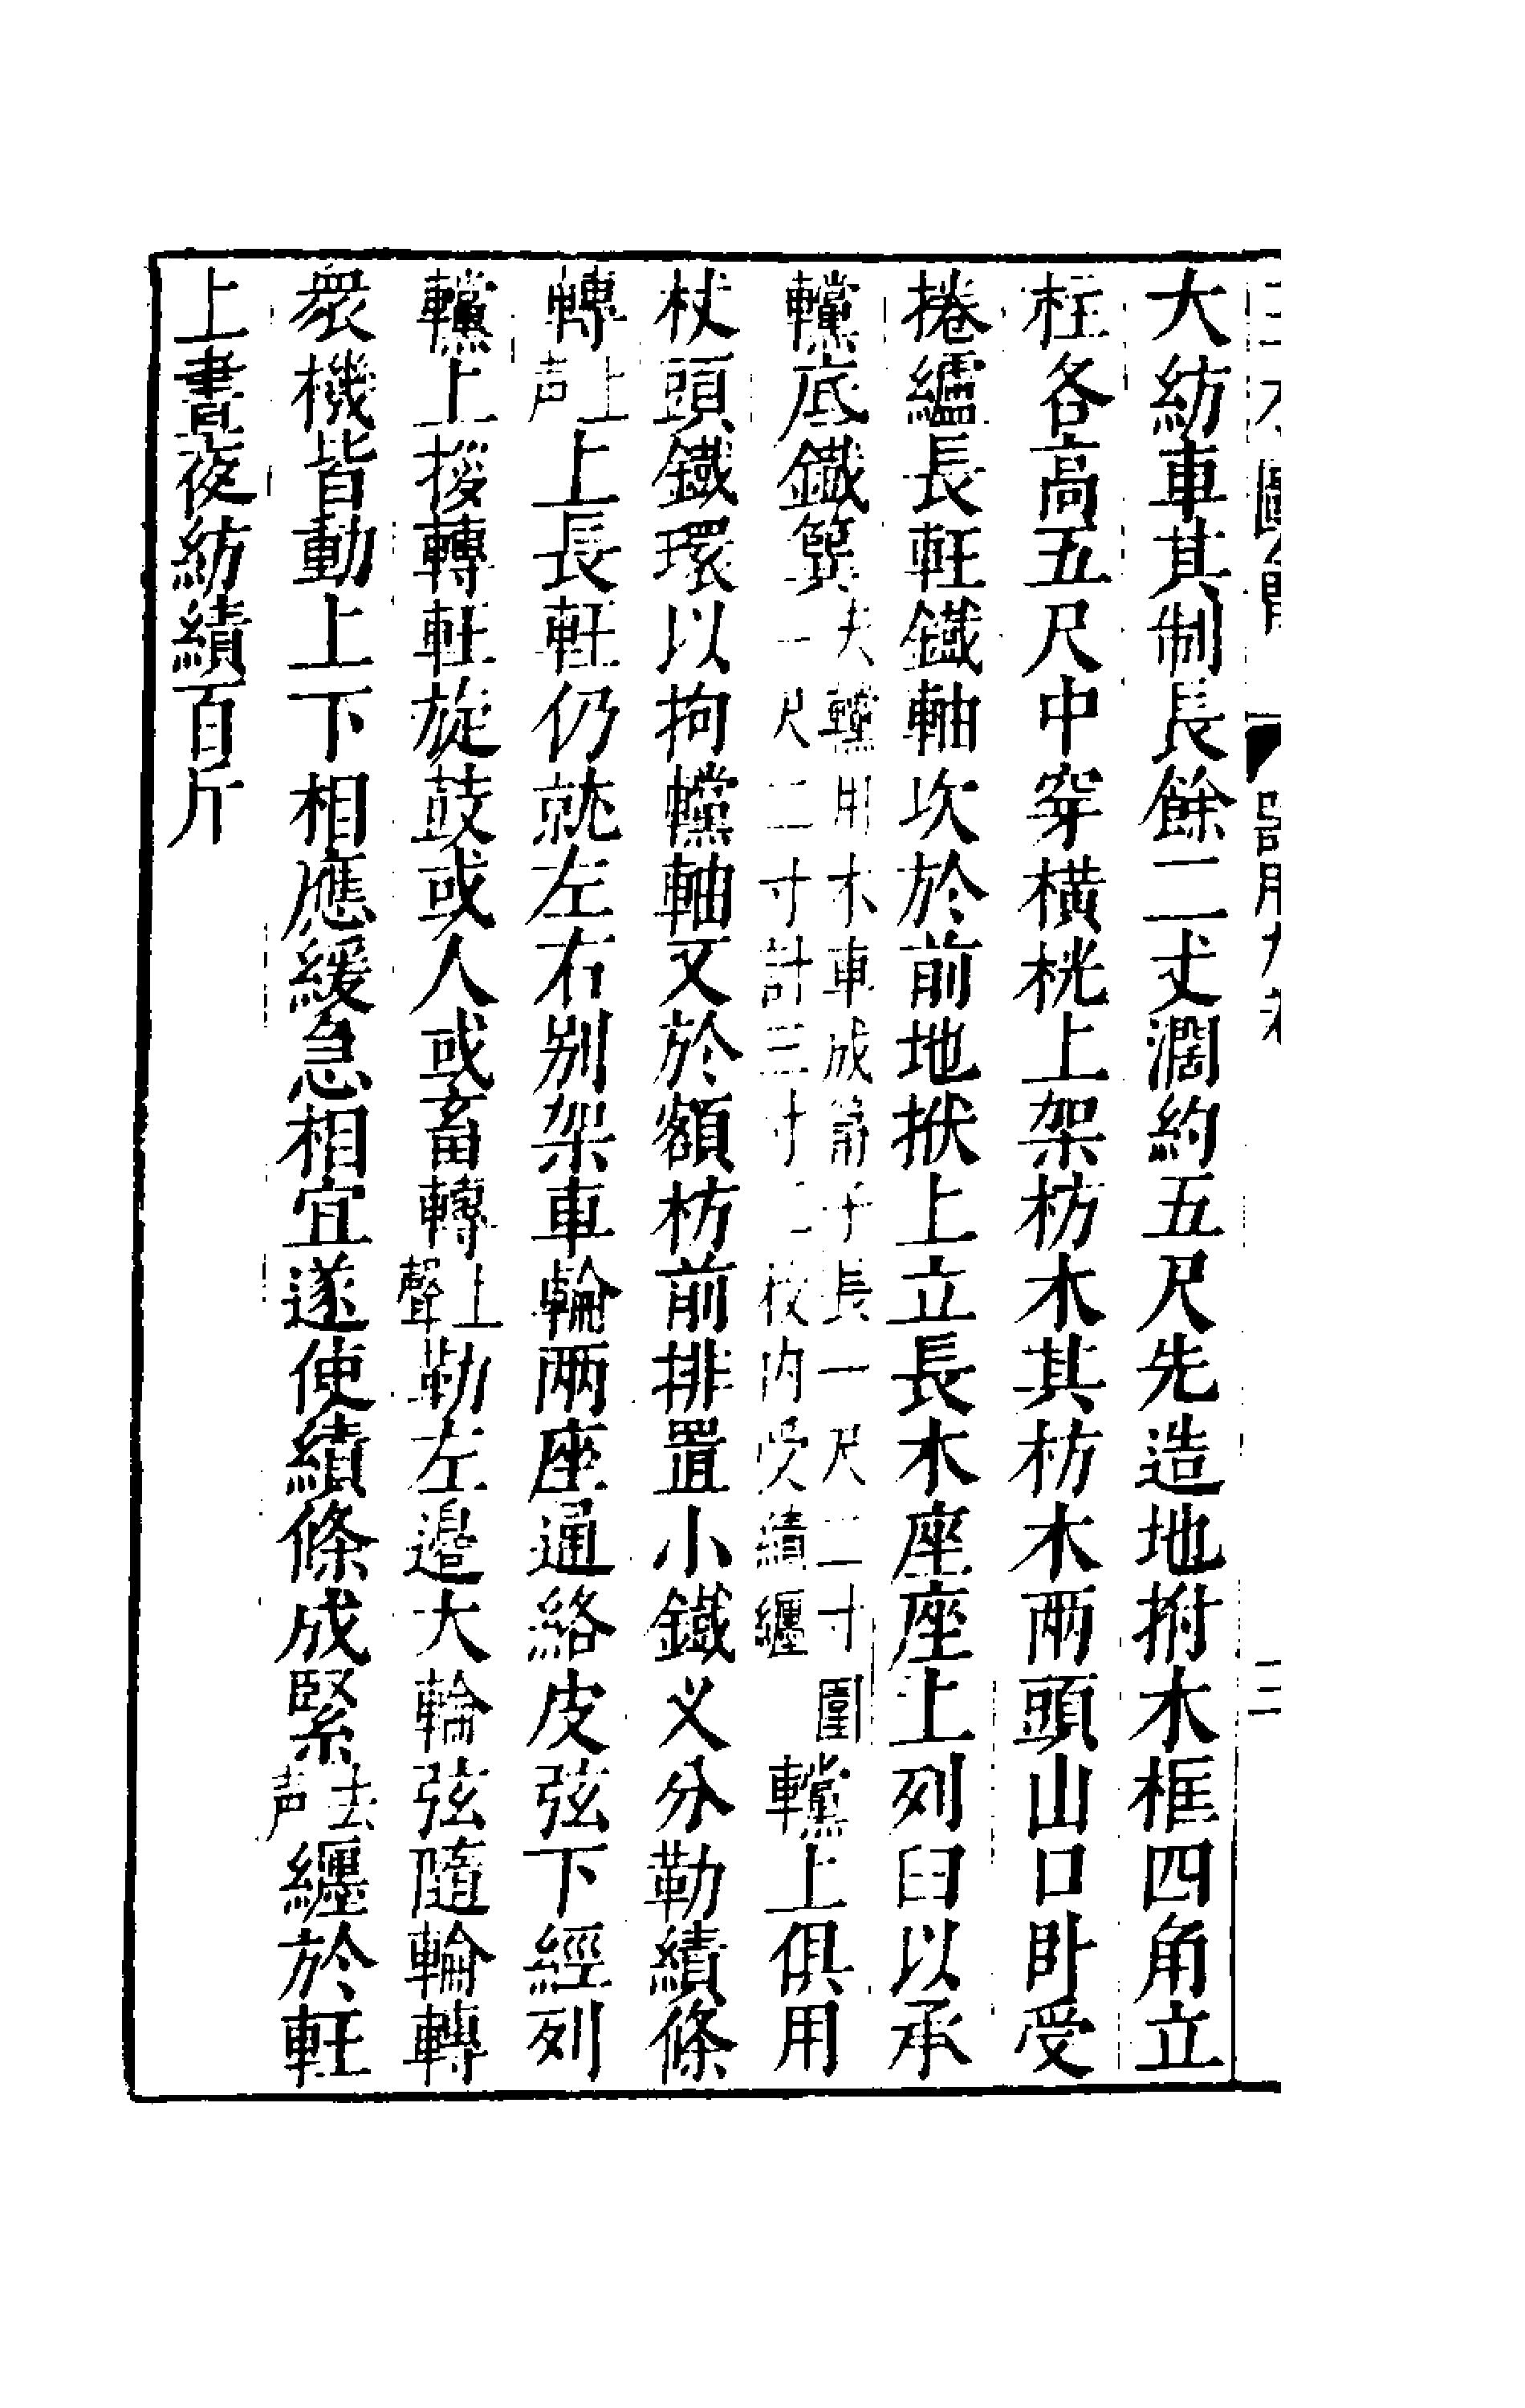 大紡車其制長餘二丈濶約五尺先造地拊木框四角立
柱各高五尺中穿橫桄上架枋木其枋木兩頭山口卧受
捲纑長軖鐵軸次於前地栿上立長木座座上列臼以承
𨏔底鐵簨夫𨏔用木車成筩子長一尺二寸圍一尺二寸計三寸二枚內受績纏𨏔上俱用
杖頭鐵環以拘𨏔軸又於額枋前排置小鐵叉分勒績條
轉上声上長軖仍就左右別架車輪兩座通絡皮弦下經列
𨏔上拶轉軖旋鼓或人或畜轉上聲勒左邉大輪弦隨輪轉
衆機皆動上下相應緩急相宜遂使績條成緊去声纏於軖
上晝夜紡績百斤